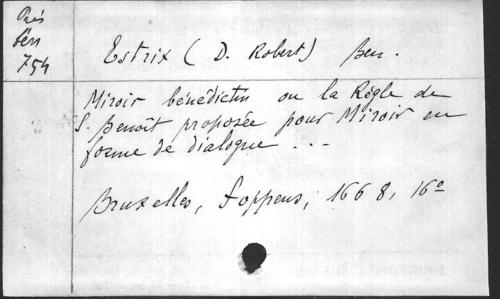 Rés
bén
754
Estrix (D. Robert) Ben.
Miroir bénédictin ou la Règle de
S. Benoît proposée pour Miroir en
forme de dialogue ...
Bruxelles, Foppens, 1668, 16º